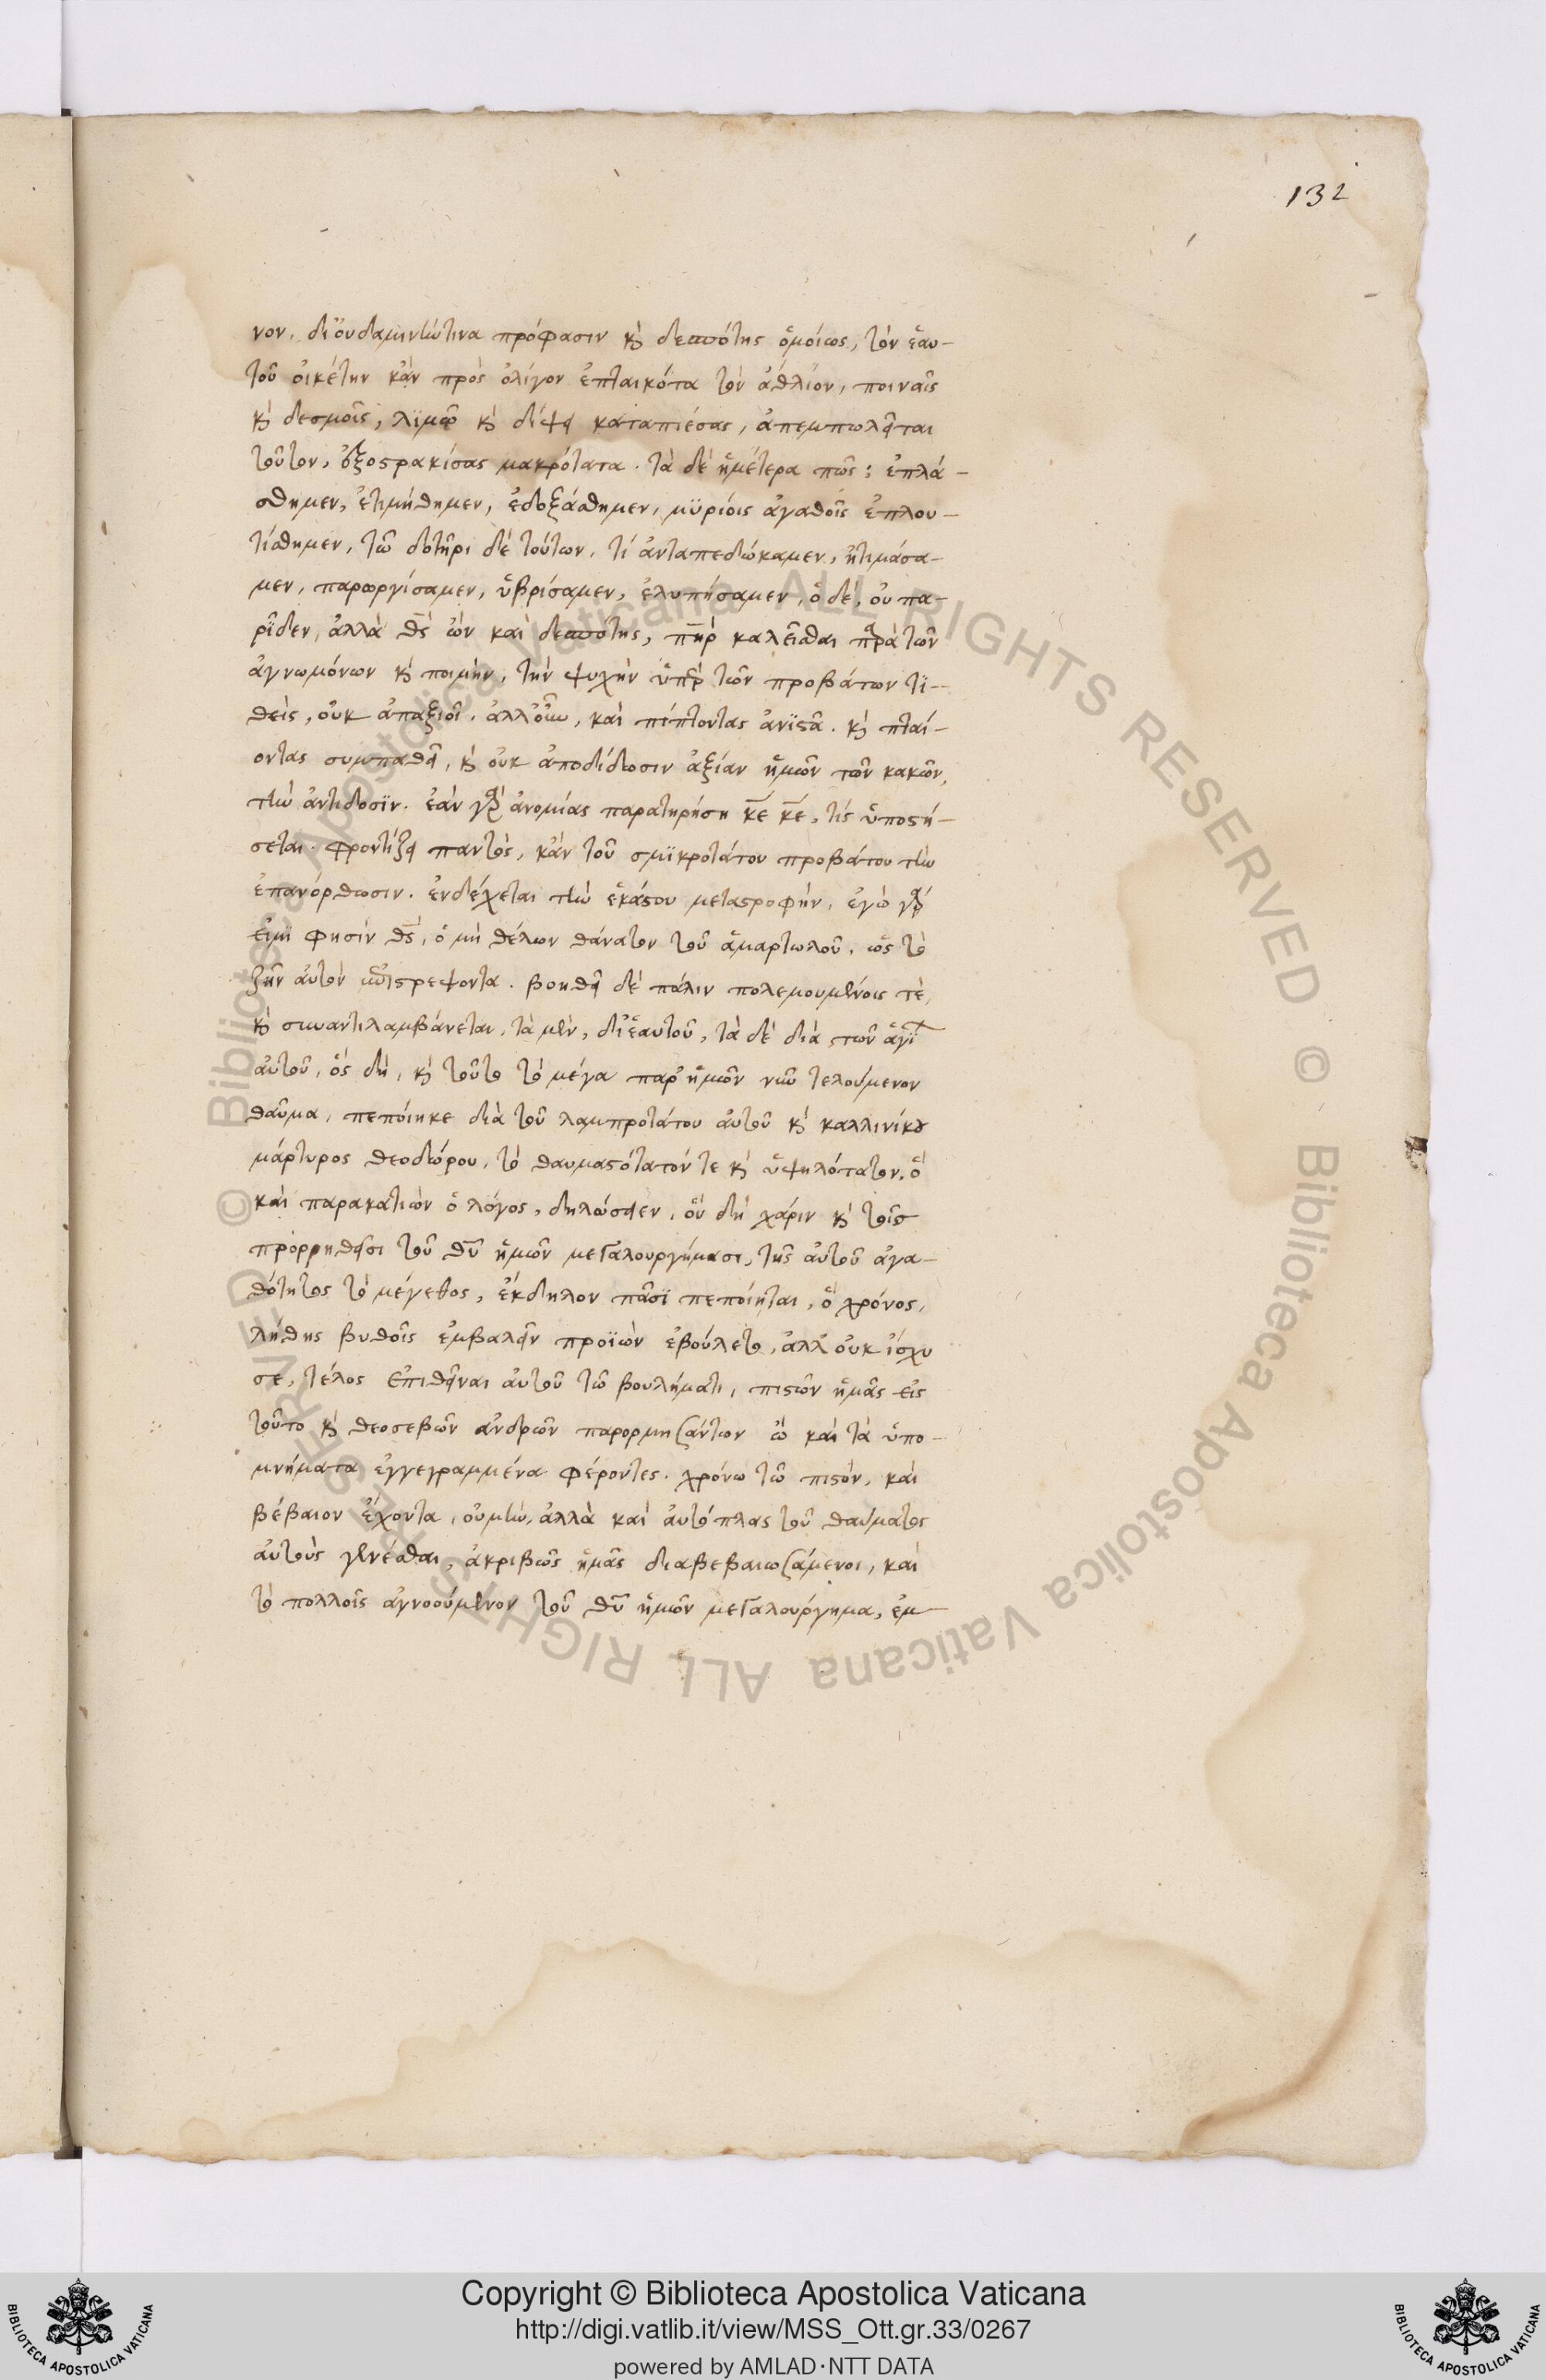 132
νον, δι' οὐδαμινώτινα πρόφασιν κ δεσπότης ὁμοίως, τὸν ἑαυ-
τοῦ οἰκέτην κἂν πρὸς ὀλίγον ἐπταικότα τὸν ἄθλιον, ποιναῖς
κ δεσμοῖς, λϊμῶ κ δίψει καταπιέσας, ἀπεμπωλεῖται
τοῦτον, ἐξοστρακίσας μακρότατα. τὰ δὲ ἡμέτερα πῶς; ἐπλά-
σθημεν, ἐτιμήθημεν, ἐδοξάσθημεν, μϋρίοις ἀγαθοῖς ἐπλου-
τίσθημεν, τῶ δοτῆρι δὲ τούτων, τί ἀνταπεδώκαμεν, ἠτιμάσα-
μεν, παρωργίσαμεν, ὑβρίσαμεν, ἐλυπήσαμεν, ὁ δὲ, οὐ πα-
ρῖδεν, ἀλλὰ θς ὢν καὶ δεσπότης, πηρ καλεῖσθαι παρὰ τῶν
ἀγνωμόνων κ ποιμὴν, τὴν ψυχὴν ὑπὲρ τῶν προβάτων τϊ-
θεὶς, οὐκ ἀπαξιοῖ. καὶ πίπτοντας ἀνϊστᾶ. κ πταί-
οντας συμπαθεῖ, κ οὐκ ἀποδίδωσιν ἀξίαν ἡμῶν τῶν κακῶν,
τὴν ἀντίδοσϊν. ἐὰν γὰρ ἀνομίας παρατηρήση κε κε, τίς ὑποστή-
σεται. φροντίζει παντὸς, κἂν τοῦ σμϊκροτάτου προβάτου τὴν
ἐπανόρθωσιν. ἐνδέχεται τὴν ἑκάστου μεταστροφὴν, ἐγὼ γάρ
εἰμϊ φησὶν θς, ὁ μὴ θέλων θάνατον τοῦ ἁμαρτωλοῦ, ὡς τὸ
ζῆν αὐτὸν ἐπιστρέψοντα. βοηθεῖ δὲ πάλιν πολεμουμένοις τὲ,
κ συναντιλαμβάνεται, τὰ μὲν, δι' ἑαυτοῦ, τὰ δὲ διὰ τῶν ἁγί
αὐτοῦ, ὃς δὴ, κ τοῦτο τὸ μέγα παρ' ἡμῶν νῦν τελούμενον
θαῦμα, πεποίηκε διὰ τοῦ λαμπροτάτου αὐτοῦ κ καλλινίκου
μάρτυρος θεοδώρου, τὸ θαυμαστότατόν τε κ ὑψηλότατον, ὃ
καὶ παρακατιὼν ὁ λόγος, δηλώσειεν, οὗ δὴ χάριν κ τοῖς
προρρηθεῖσι τοῦ θυ ἡμῶν μεγαλουργήμασι, τῆς αὐτοῦ ἀγα-
θότητος τὸ μέγεθος, ἔκδηλον πᾶσϊ πεποίηται, ὃ χρόνος,
λήθης βυθοῖς ἐμβαλεῖν προϊὼν ἐβούλετο, ἀλλ' οὐκ ἴσχυ
σε, τέλος ἐπιθεῖναι αὐτοῦ τῶ βουλήματι, πιστῶν ἡμᾶς εἰς
τοῦτο κ θεοσεβῶν ἀνδρῶν παρορμησάντων ὧ καὶ τὰ ὑπο-
μνήματα ἐγγεγραμμένα φέροντες. χρόνω τῶ πιστὸν, καὶ
βέβαιον ἔχοντα, οὐμὴν, ἀλλὰ καὶ αὐτόπτας τοῦ θαύματος
αὐτοὺς γενέσθαι, ἀκριβῶς ἡμᾶς διαβεβαιωσάμενοι, καὶ
τὸ πολλοῖς ἀγνοούμενον τοῦ θυ ἡμῶν μεγαλούργημα, ἐμ-
© Biblioteca Apostolica Vaticana ALL RIGHTS RESERVED
© Biblioteca Apostolica Vaticana ALL RIGHTS RESERVED
Copyright © Biblioteca Apostolica Vaticana
http://digi.vatlib.it/view/MSS_Ott.gr.33/0267
powered by AMLAD·NTT DATA
BIBLIOTECA APOSTOLICA VATICANA
BIBLIOTECA APOSTOLICA VATICANA